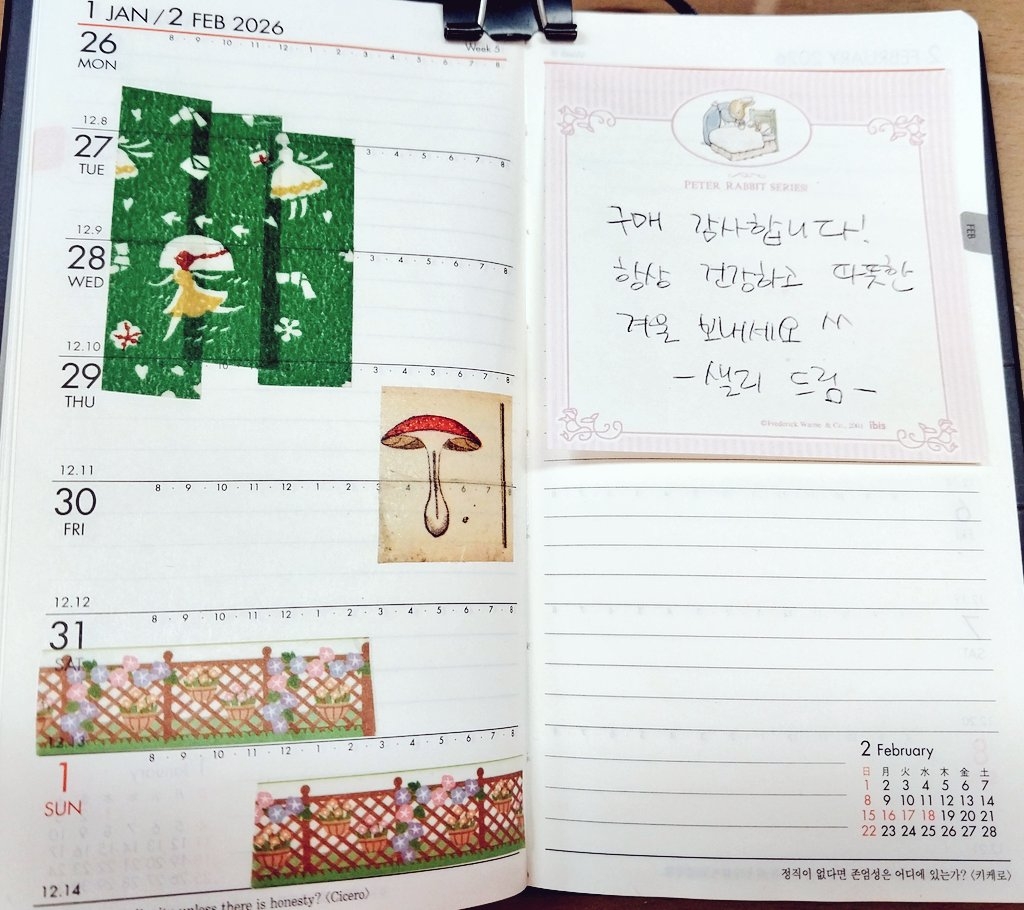 1 JAN / 2 FEB 2026
Week 5
26
MON
8 · 9 · 10 · 11 · 12 · 1 · 2 · 3 · 4 · 5 · 6 · 7 · 8
12.8
27
TUE
3 · 4 · 5 · 6 · 7 · 8
12.9
28
WED
3 · 4 · 5 · 6 · 7 · 8
12.10
29
THU
3 · 4 · 5 · 6 · 7 · 8
12.11
30
FRI
8 · 9 · 10 · 11 · 12 · 1 · 2 · 3 · 4 · 5 · 6 · 7 · 8
12.12
31
SAT
8 · 9 · 10 · 11 · 12 · 1 · 2 · 3 · 4 · 5 · 6 · 7 · 8
12.13
1
SUN
8 · 9 · 10 · 11 · 12 · 1 · 2 · 3 · 4 · 5 · 6 · 7 · 8
12.14
unless there is honesty? (Cicero)
PETER RABBIT SERIES
구매 감사합니다!
항상 건강하고 따뜻한
겨울 보내세요 ^^
- 샐리 드림 -
©Frederick Warne & Co., 2001 ibis
FEB
2 February
日 月 火 水 木 金 土
1 2 3 4 5 6 7
8 9 10 11 12 13 14
15 16 17 18 19 20 21
22 23 24 25 26 27 28
정직이 없다면 존엄성은 어디에 있는가? (키케로)